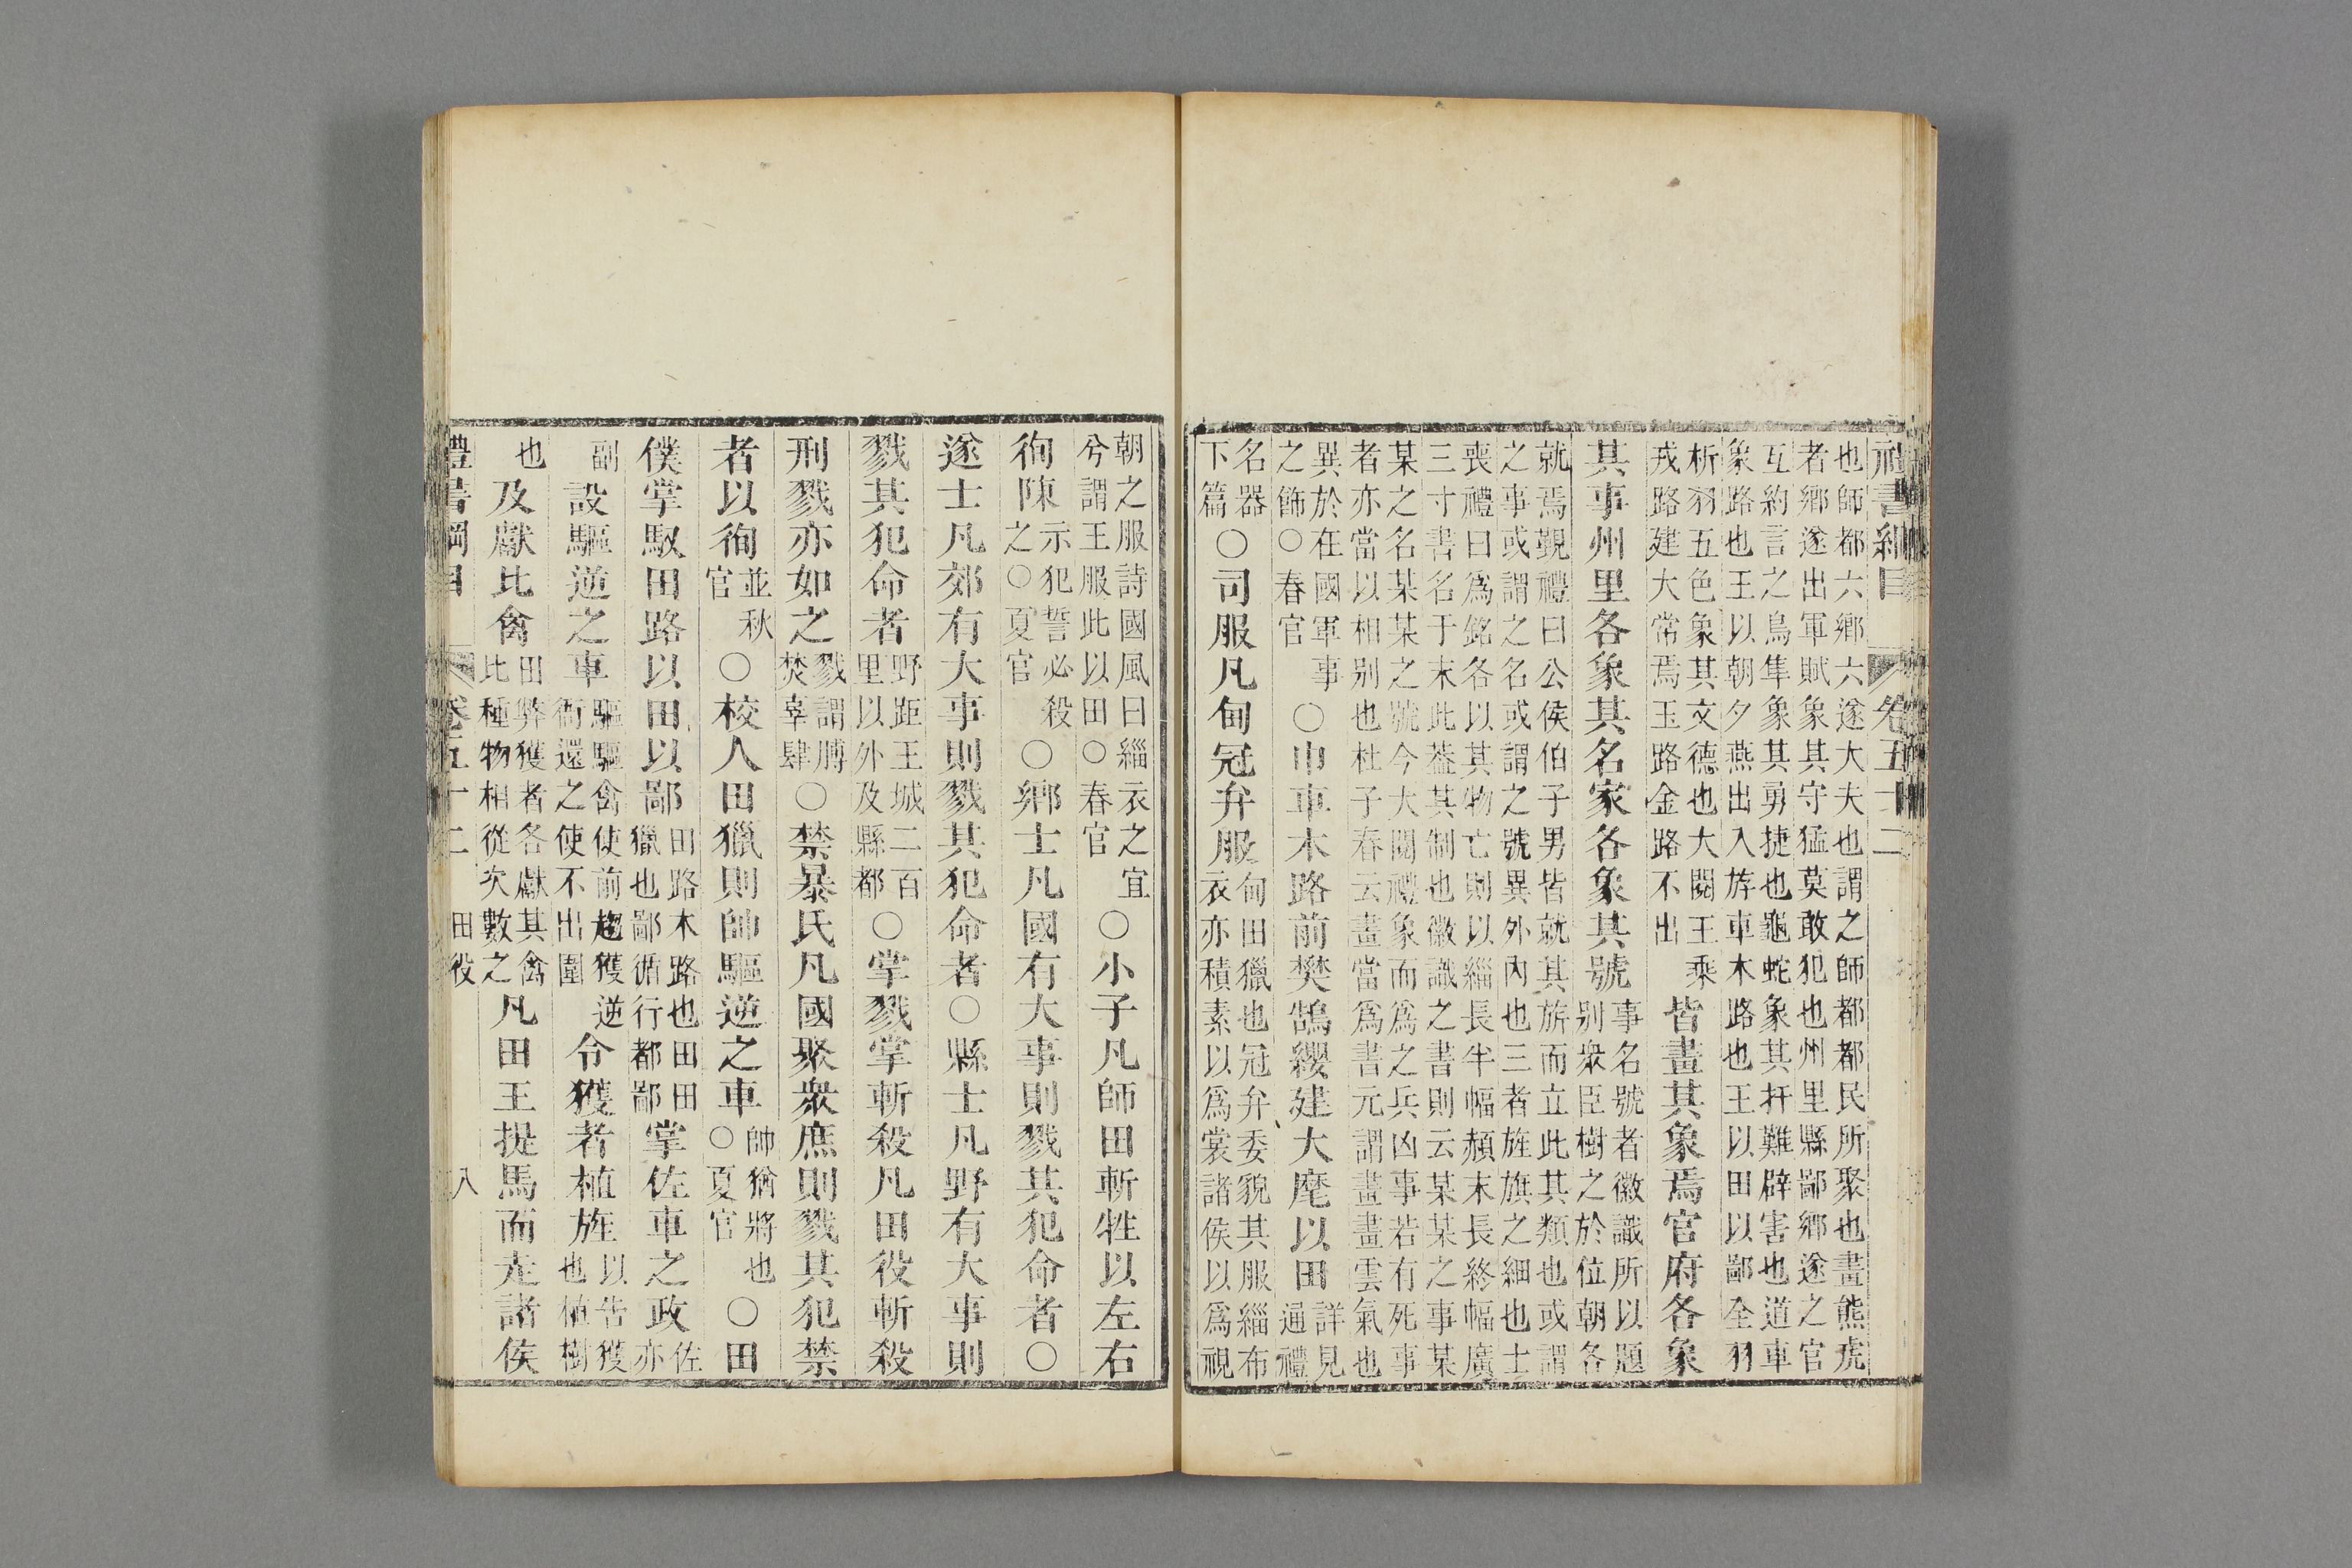 禮書綱目 卷五十二
也師都六鄉六遂大夫也謂之師都都民所聚也畫熊虎
者鄉遂出軍賦象其守猛莫敢犯也州里縣鄙鄉遂之官
互約言之鳥隼象其勇捷也龜蛇象其扞難辟害也道車
象路也王以朝夕燕出入斿車木路也王以田以鄙全羽
析羽五色象其文德也大閱王乘
戎路建大常焉玉路金路不出
皆畫其象焉官府各象
其事州里各象其名家各象其號
事名號者徽識所以題
别衆臣樹之於位朝各
就焉覲禮曰公侯伯子男皆就其旂而立此其類也或謂
之事或謂之名或謂之號異外內也三者旌旗之細也士
喪禮曰爲銘各以其物亡則以緇長半幅赬末長終幅廣
三寸書名于末此葢其制也徽識之書則云某某之事某
某之名某某之號今大閱禮象而爲之兵凶事若有死事
者亦當以相别也杜子春云畫當爲書元謂畫畫雲氣也
異於在國軍事
之飾○春官
○巾車木路前樊鵠纓建大麾以田
詳見
通禮
名器
下篇
○司服凡甸冠弁服
甸田獵也冠弁委貌其服緇布
衣亦積素以爲裳諸侯以爲視
朝之服詩國風曰緇衣之宜
兮謂王服此以田○春官
○小子凡師田斬牲以左右
徇陳
示犯誓必殺
之○夏官
○鄉士凡國有大事則戮其犯命者○
遂士凡郊有大事則戮其犯命者○縣士凡野有大事則
戮其犯命者
野距王城二百
里以外及縣都
○掌戮掌斬殺凡田役斬殺
刑戮亦如之
戮謂膊
焚辜肆
○禁暴氏凡國聚衆庶則戮其犯禁
者以徇
並秋
官
○校人田獵則帥驅逆之車
帥猶將也
○夏官
○田
僕掌馭田路以田以鄙
田路木路也田田
獵也鄙循行都鄙
掌佐車之政
佐
亦
副
設驅逆之車
驅驅禽使前趨獲逆
衙還之使不出圍
令獲者植旌
以告獲
也植樹
也
及獻比禽
田弊獲者各獻其禽
比種物相從次數之
凡田王提馬而走諸侯
禮書綱目 卷五十二 田役 八